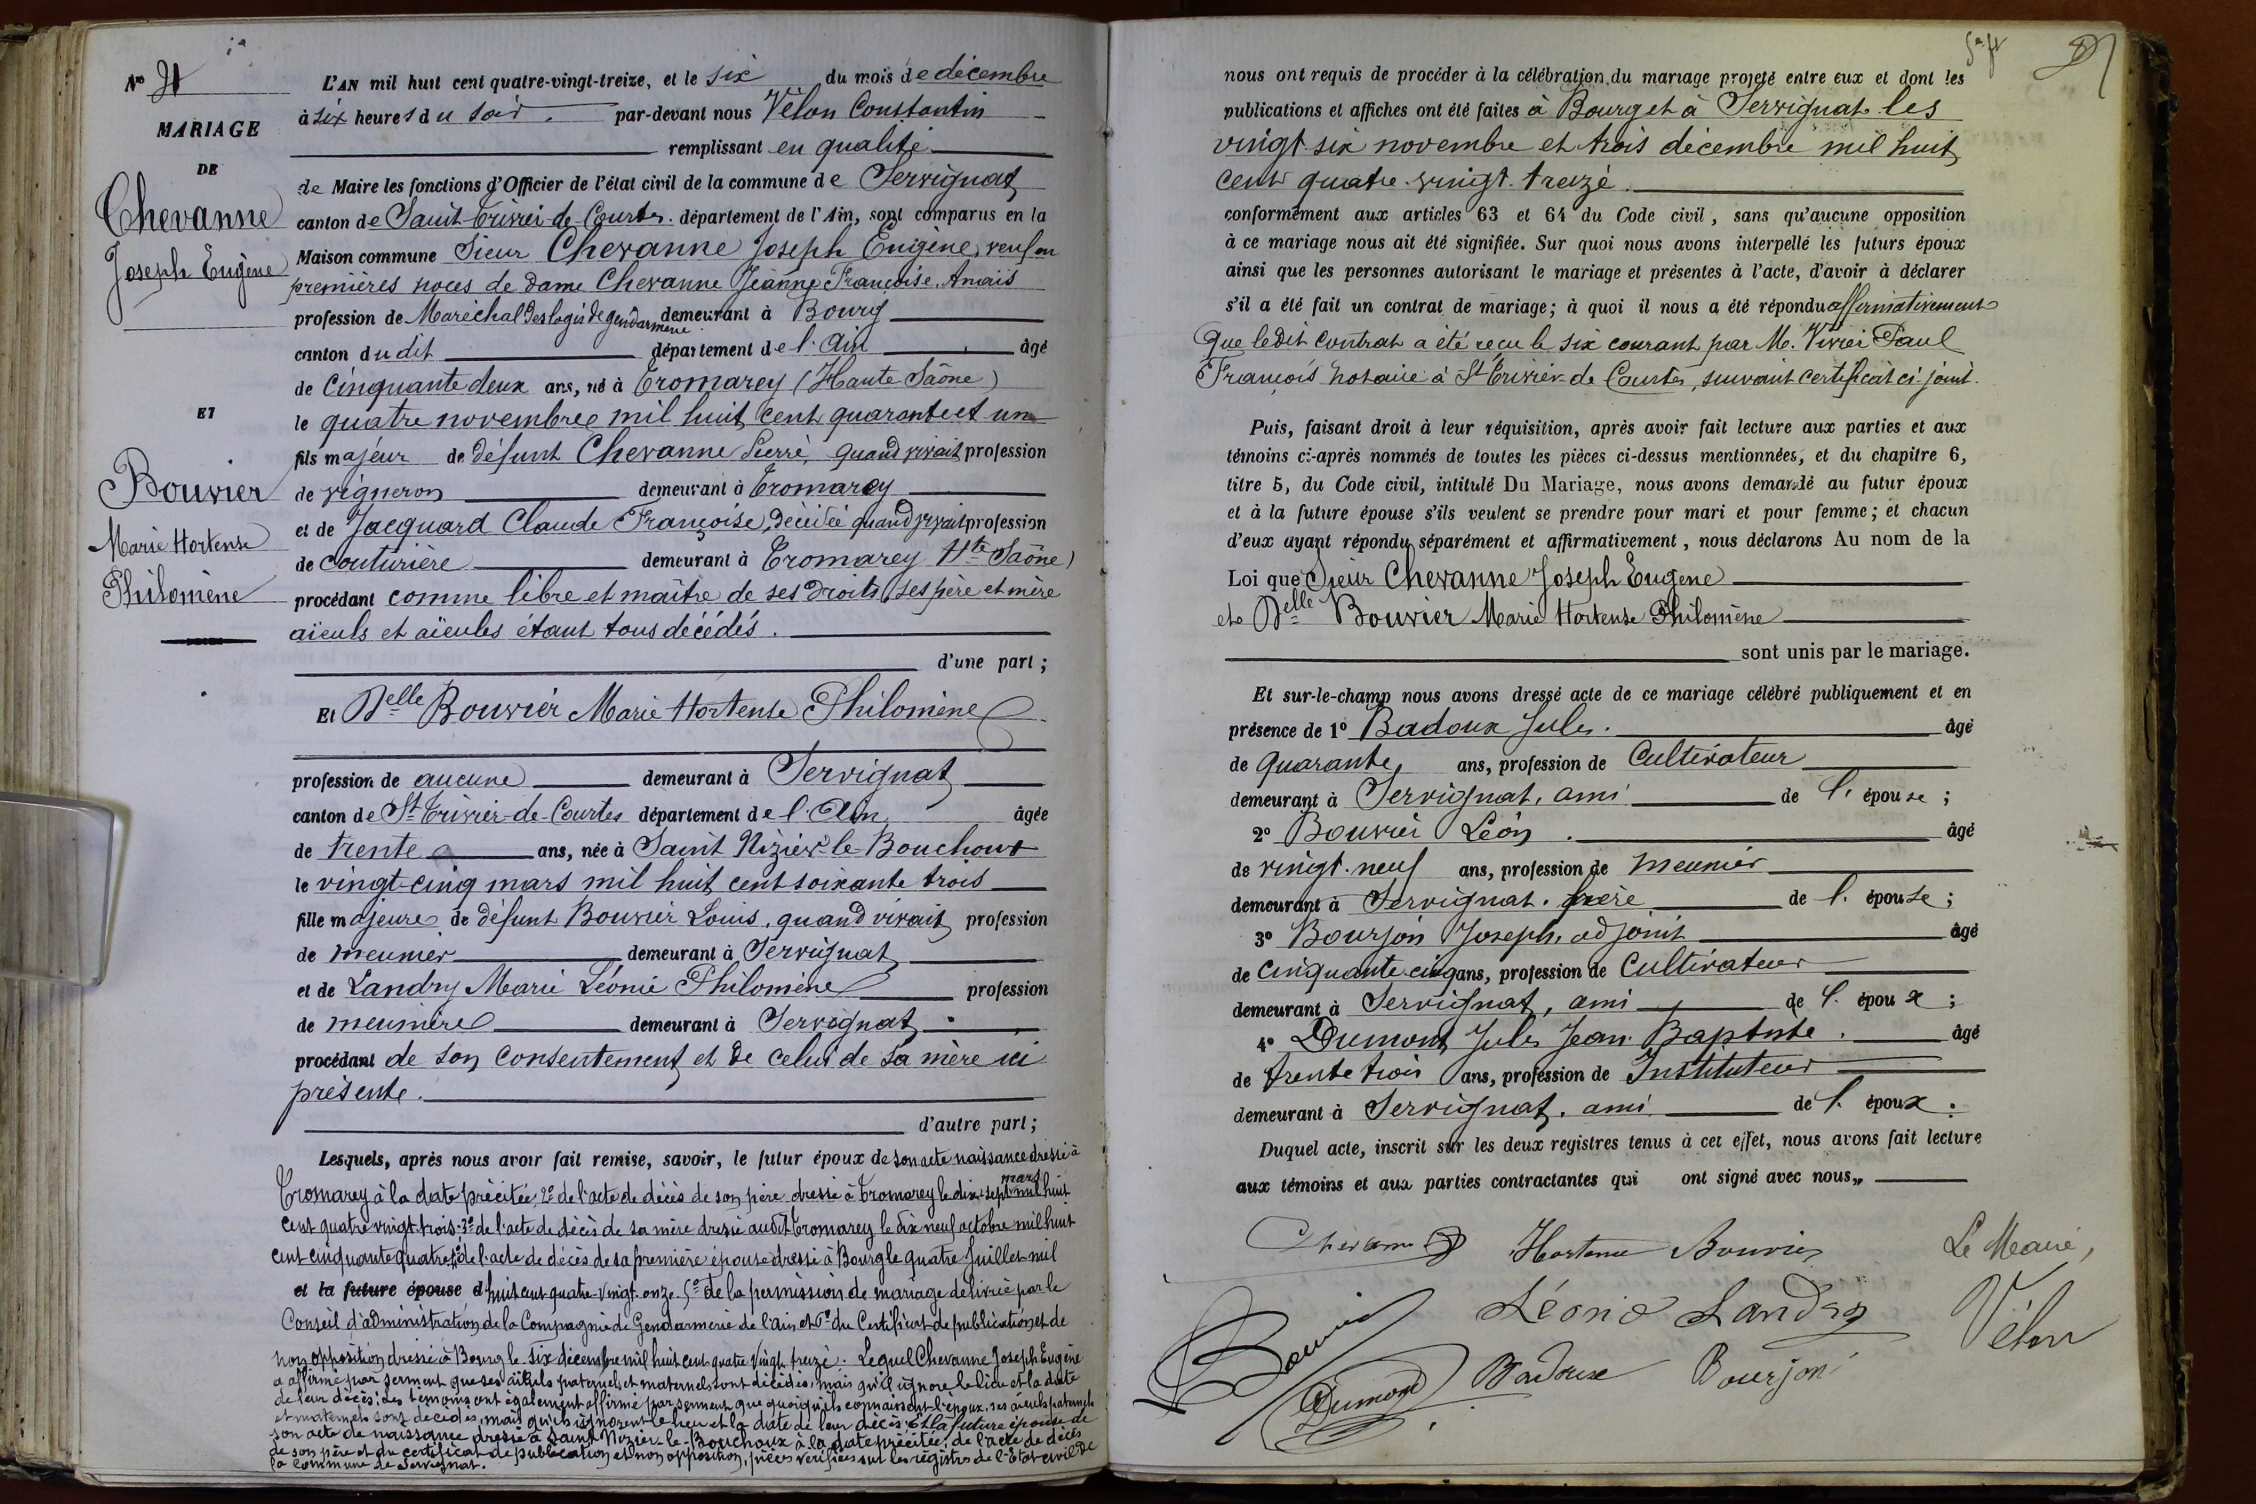 L'AN mil huit cent quatre-vingt-treize, et le six du mois de décembre
à six heures du soir. par-devant nous Vélon Constantin
remplissant en qualité
de Maire les fonctions d'Officier de l'état civil de la commune de Servignat
canton de Saint-Trivier-de-Courtes. département de l'Ain, sont comparus en la
Maison commune Sieur Chevanne Joseph Eugène, veuf en
premières noces de dame Chevanne Jeanne Françoise Anaïs
profession de Maréchal des logis de gendarmerie. demeurant à Bourg
canton du dit département de l'Ain âgé
de cinquante deux ans, né à Tromarey (Haute Saône)
le quatre novembre mil huit cent quarante et un
fils majeur de défunt Chevanne Pierre, quand vivait profession
de vigneron demeurant à Tromarey
et de Jacquard Claude Françoise, décédée quand vivait profession
de couturière demeurant à Tromarey Hte Saône)
procédant comme libre et maître de ses droits, ses père et mère
aïeuls et aïeules étant tous décédés.
d'une part ;
Et Delle Bouvier Marie Hortense Philomène
profession de aucune demeurant à Servignat
canton de St Trivier-de-Courtes département de l'Ain âgée
de trente ans, née à Saint Nizier-le-Bouchoux
le vingt-cinq mars mil huit cent soixante trois
fille majeure de défunt Bouvier Louis, quand vivait profession
de meunier demeurant à Servignat
et de Landry Marie Léonie Philomène profession
de meunière demeurant à Servignat
procédant de son consentement et de celui de sa mère ici
présente.
d'autre part ;
Lesquels, après nous avoir fait remise, savoir, le futur époux de son acte naissance dressé à
Tromarey à la date précitée, 2º de l'acte de décès de son père dressé à Tromarey le dix-sept mars mil huit
cent quatre vingt-trois; 3º de l'acte de décès de sa mère dressé au dit Tromarey le dix neuf octobre mil huit
cent cinquante quatre; 4º de l'acte de décès de sa première épouse dressé à Bourg le quatre Juillet mil
et la future épouse d huit cent quatre-vingt-onze. 5º de la permission de mariage délivrée par le
Conseil d'administration de la Compagnie de Gendarmerie de l'ain et 6º du Certificat de publication et de
non opposition dressé à Bourg le six décembre mil huit cent quatre vingt treize. Lequel Chevanne Joseph Eugène
a affirmé par serment que ses aïeuls paternels et maternels sont décédés, mais qu'il ignore le lieu et la date
de leur décès; les témoins ont également affirmé par serment que quoiqu'ils connaissent l'époux, ses aïeuls paternels
et maternels sont décédés, mais qu'ils ignorent le lieu et la date de leur décès. Et la future épouse de
son acte de naissance dressé à Saint Nizier-le-Bouchoux à la date précitée; de l'acte de décès
de son père et du certificat de publication et non opposition, pièces vérifiées sur les régistres de l'Etat civil de
la commune de Servignat.
MARIAGE
DE
Chevanne
Joseph Eugène
ET
Bouvier
Marie Hortense
Philomène
nous ont requis de procéder à la célébration du mariage projeté entre eux et dont les
publications et affiches ont été faites à Bourg et à Servignat les
vingt-six novembre et trois décembre mil huit
cent quatre-vingt-treize.
conformément aux articles 63 et 64 du Code civil, sans qu'aucune opposition
à ce mariage nous ait été signifiée. Sur quoi nous avons interpellé les futurs époux
ainsi que les personnes autorisant le mariage et présentes à l'acte, d'avoir à déclarer
s'il a été fait un contrat de mariage ; à quoi il nous a été répondu affirmativement
que ledit contrat a été reçu le six courant par M. Vivier Paul
François notaire à St Trivier-de Courtes, suivant certificat ci-joint.
Puis, faisant droit à leur réquisition, après avoir fait lecture aux parties et aux
témoins ci-après nommés de toutes les pièces ci-dessus mentionnées, et du chapitre 6,
titre 5, du Code civil, intitulé Du Mariage, nous avons demandé au futur époux
et à la future épouse s'ils veulent se prendre pour mari et pour femme ; et chacun
d'eux ayant répondu séparément et affirmativement, nous déclarons Au nom de la
Loi que Sieur Chevanne Joseph Eugène
et Delle Bouvier Marie Hortense Philomène
sont unis par le mariage.
Et sur-le-champ nous avons dressé acte de ce mariage célébré publiquement et en
présence de 1º Badoux Jules. âgé
de quarante ans, profession de Cultivateur
demeurant à Servignat, ami de l' épouse ;
2º Bouvier Léon. âgé
de vingt-neuf ans, profession de meunier
demeurant à Servignat. frère de l' épouse ;
3º Bourjon Joseph, adjoint âgé
de Cinquante cinq ans, profession de Cultivateur
demeurant à Servignat, ami de l' époux ;
4º Dumont Jules Jean Baptiste. âgé
de trente trois ans, profession de Instituteur
demeurant à Servignat. ami de l' époux.
Duquel acte, inscrit sur les deux registres tenus à cet effet, nous avons fait lecture
aux témoins et aux parties contractantes qui ont signé avec nous,,
Chevanne Hortense Bouvier Le Maire,
Léonie Landry Vélon
Bouvier
Dumont Badoux Bourjon